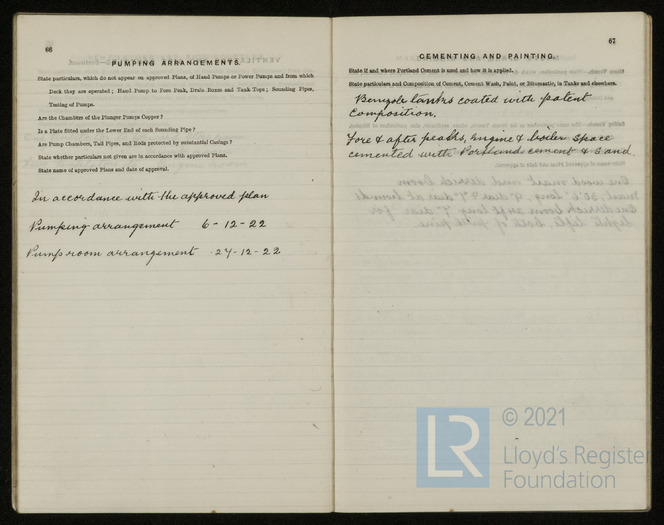 66
PUMPING ARRANGEMENTS.
State particulars, which do not appear on approved Plans, of Hand Pumps or Power Pumps and from which
Deck they are operated; Hand Pump to Fore Peak, Drain Boxes and Tank Tops; Sounding Pipes,
Testing of Pumps.
Are the Chambers of the Plunger Pumps Copper?
Is a Plate fitted under the Lower End of each Sounding Pipe?
Are Pump Chambers, Tail Pipes, and Rods protected by substantial Casings?
State whether particulars not given are in accordance with approved Plans.
State name of approved Plans and date of approval.
In accordance with the approved plan
Pumping arrangement 6-12-22
Pumproom arrangement 27-12-22
67
CEMENTING AND PAINTING.
State if and where Portland Cement is used and how it is applied.
State particulars and Composition of Cement, Cement Wash, Paint, or Bitumastic, in Tanks and elsewhere.
Benzole tanks coated with patent
Composition.
Fore & after peaks, Engine & boiler space
cemented with Portland cement & Sand.
LR
© 2021
Lloyd's Register
Foundation